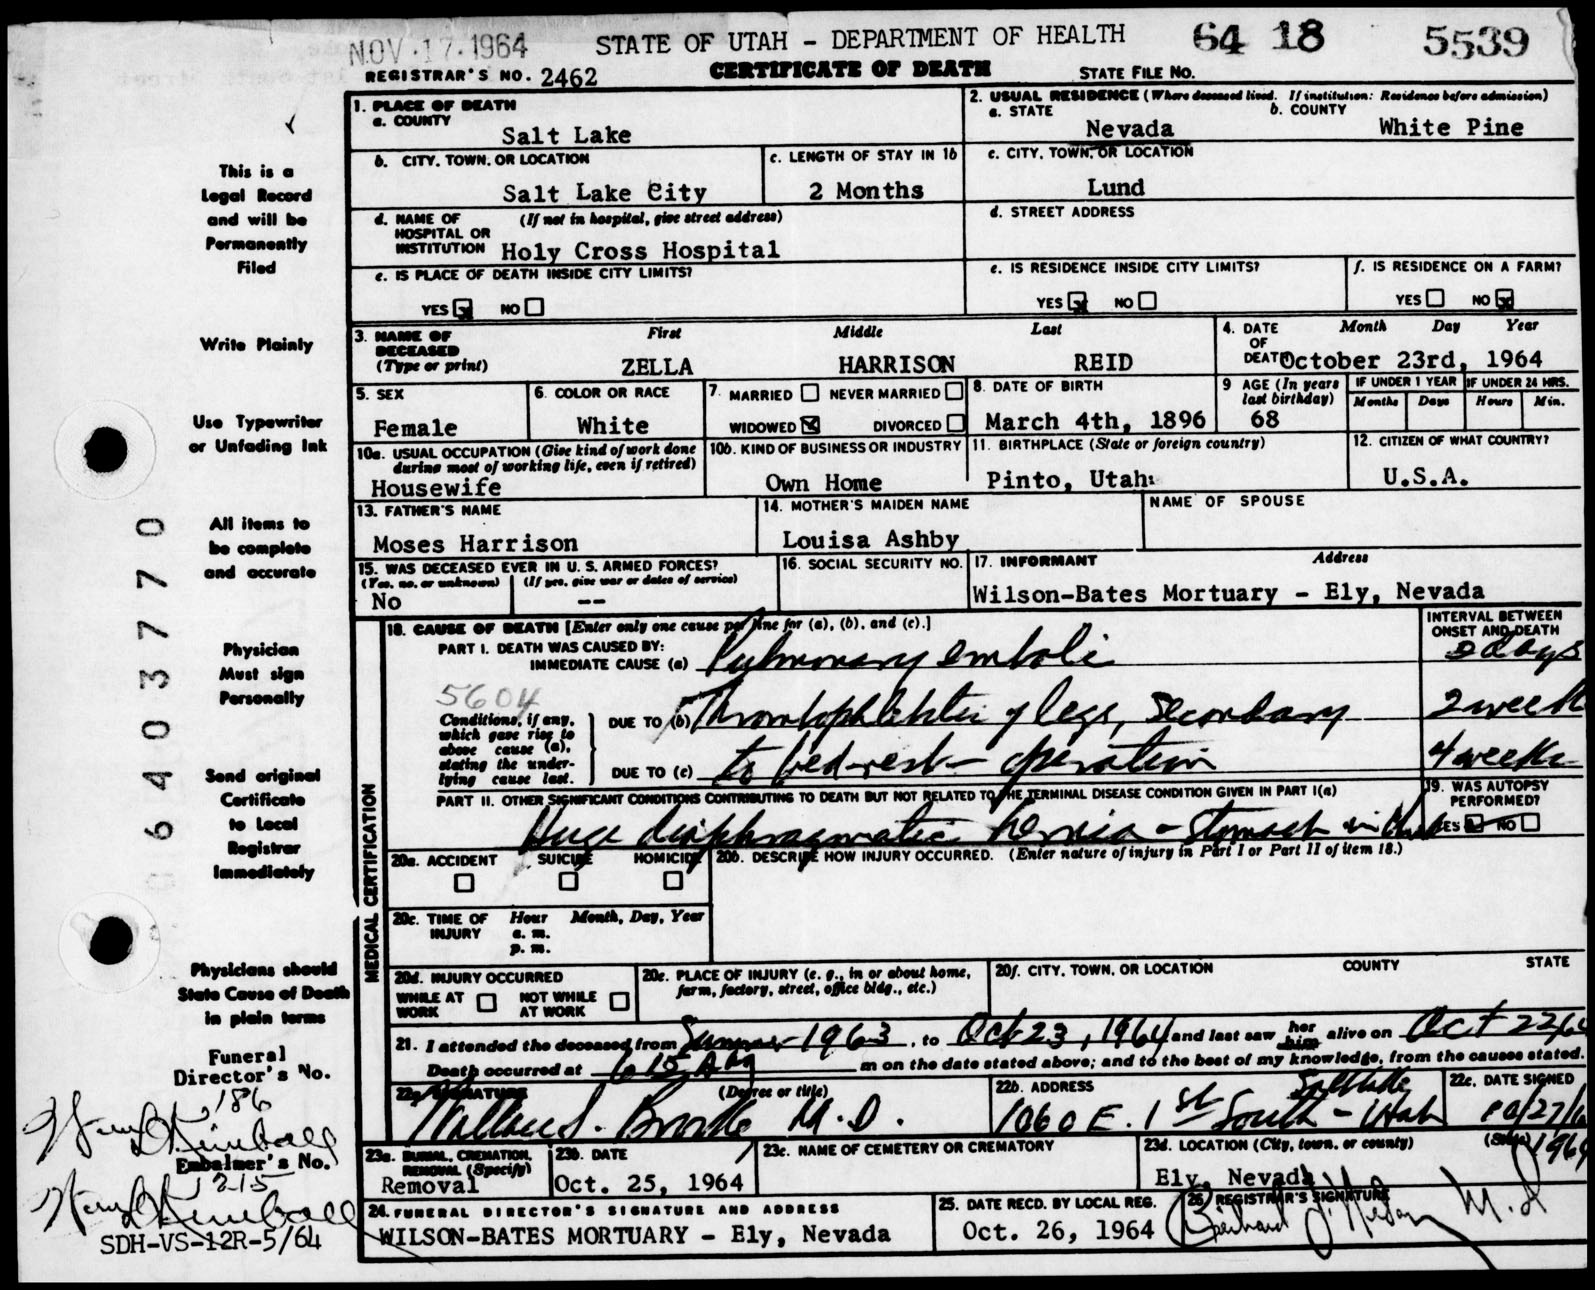 NOV 17 1964 STATE OF UTAH - DEPARTMENT OF HEALTH 64 18 5539
REGISTRAR'S NO. 2462 CERTIFICATE OF DEATH STATE FILE NO.
This is a
Legal Record
and will be
Permanently
Filed
Write Plainly
Use Typewriter
or Unfading Ink
All items to
be complete
and accurate
Physician
Must sign
Personally
Send original
Certificate
to Local
Registrar
Immediately
Physicians should
State Cause of Death
in plain terms
Funeral
Director's No.
186
Embalmer's No.
1215
SDH-VS-12R-5/64
6403770
1. PLACE OF DEATH
a. COUNTY
Salt Lake
2. USUAL RESIDENCE (Where deceased lived. If institution: Residence before admission)
a. STATE b. COUNTY
Nevada White Pine
b. CITY, TOWN, OR LOCATION c. LENGTH OF STAY IN 1b c. CITY, TOWN, OR LOCATION
Salt Lake City 2 Months Lund
d. NAME OF HOSPITAL OR INSTITUTION (If not in hospital, give street address) d. STREET ADDRESS
Holy Cross Hospital
e. IS PLACE OF DEATH INSIDE CITY LIMITS? e. IS RESIDENCE INSIDE CITY LIMITS? f. IS RESIDENCE ON A FARM?
YES X NO YES X NO YES NO X
3. NAME OF DECEASED (Type or print) First Middle Last 4. DATE OF DEATH Month Day Year
ZELLA HARRISON REID October 23rd, 1964
5. SEX 6. COLOR OR RACE 7. MARRIED NEVER MARRIED 8. DATE OF BIRTH 9 AGE (In years last birthday) IF UNDER 1 YEAR IF UNDER 24 HRS.
Months Days Hours Min.
Female White WIDOWED X DIVORCED March 4th, 1896 68
10a. USUAL OCCUPATION (Give kind of work done during most of working life, even if retired) 10b. KIND OF BUSINESS OR INDUSTRY 11. BIRTHPLACE (State or foreign country) 12. CITIZEN OF WHAT COUNTRY?
Housewife Own Home Pinto, Utah U.S.A.
13. FATHER'S NAME 14. MOTHER'S MAIDEN NAME NAME OF SPOUSE
Moses Harrison Louisa Ashby
15. WAS DECEASED EVER IN U. S. ARMED FORCES? 16. SOCIAL SECURITY NO. 17. INFORMANT Address
(Yes, no, or unknown) (If yes, give war or dates of service)
No -- Wilson-Bates Mortuary - Ely, Nevada
MEDICAL CERTIFICATION
18. CAUSE OF DEATH [Enter only one cause per line for (a), (b), and (c).] INTERVAL BETWEEN ONSET AND DEATH
PART I. DEATH WAS CAUSED BY:
IMMEDIATE CAUSE (a) Pulmonary emboli days
5604
Conditions, if any, which gave rise to above cause (a), stating the underlying cause last.
DUE TO (b) Thrombophlebitis of legs, secondary 2 weeks
DUE TO (c) to bed-rest - operation 4 weeks
PART II. OTHER SIGNIFICANT CONDITIONS CONTRIBUTING TO DEATH BUT NOT RELATED TO THE TERMINAL DISEASE CONDITION GIVEN IN PART I(a) 19. WAS AUTOPSY PERFORMED?
Huge diaphragmatic hernia - stomach in chest YES NO
20a. ACCIDENT SUICIDE HOMICIDE 20b. DESCRIBE HOW INJURY OCCURRED. (Enter nature of injury in Part I or Part II of item 18.)
20c. TIME OF INJURY Hour Month, Day, Year
a. m.
p. m.
20d. INJURY OCCURRED 20e. PLACE OF INJURY (e. g., in or about home, farm, factory, street, office bldg., etc.) 20f. CITY, TOWN, OR LOCATION COUNTY STATE
WHILE AT WORK NOT WHILE AT WORK
21. I attended the deceased from Summer 1963, to Oct 23, 1964 and last saw her him alive on Oct 22/64
Death occurred at 6 15 AM m on the date stated above; and to the best of my knowledge, from the causes stated.
22a. SIGNATURE (Degree or title) 22b. ADDRESS 22c. DATE SIGNED
M.D. 1060 E. 1st South - Utah 10/27/
1964
23a. BURIAL, CREMATION, REMOVAL (Specify) 23b. DATE 23c. NAME OF CEMETERY OR CREMATORY 23d. LOCATION (City, town, or county) (State)
Removal Oct. 25, 1964 Ely, Nevada
24. FUNERAL DIRECTOR'S SIGNATURE AND ADDRESS 25. DATE RECD. BY LOCAL REG. 26. REGISTRAR'S SIGNATURE
WILSON-BATES MORTUARY - Ely, Nevada Oct. 26, 1964 M.D.